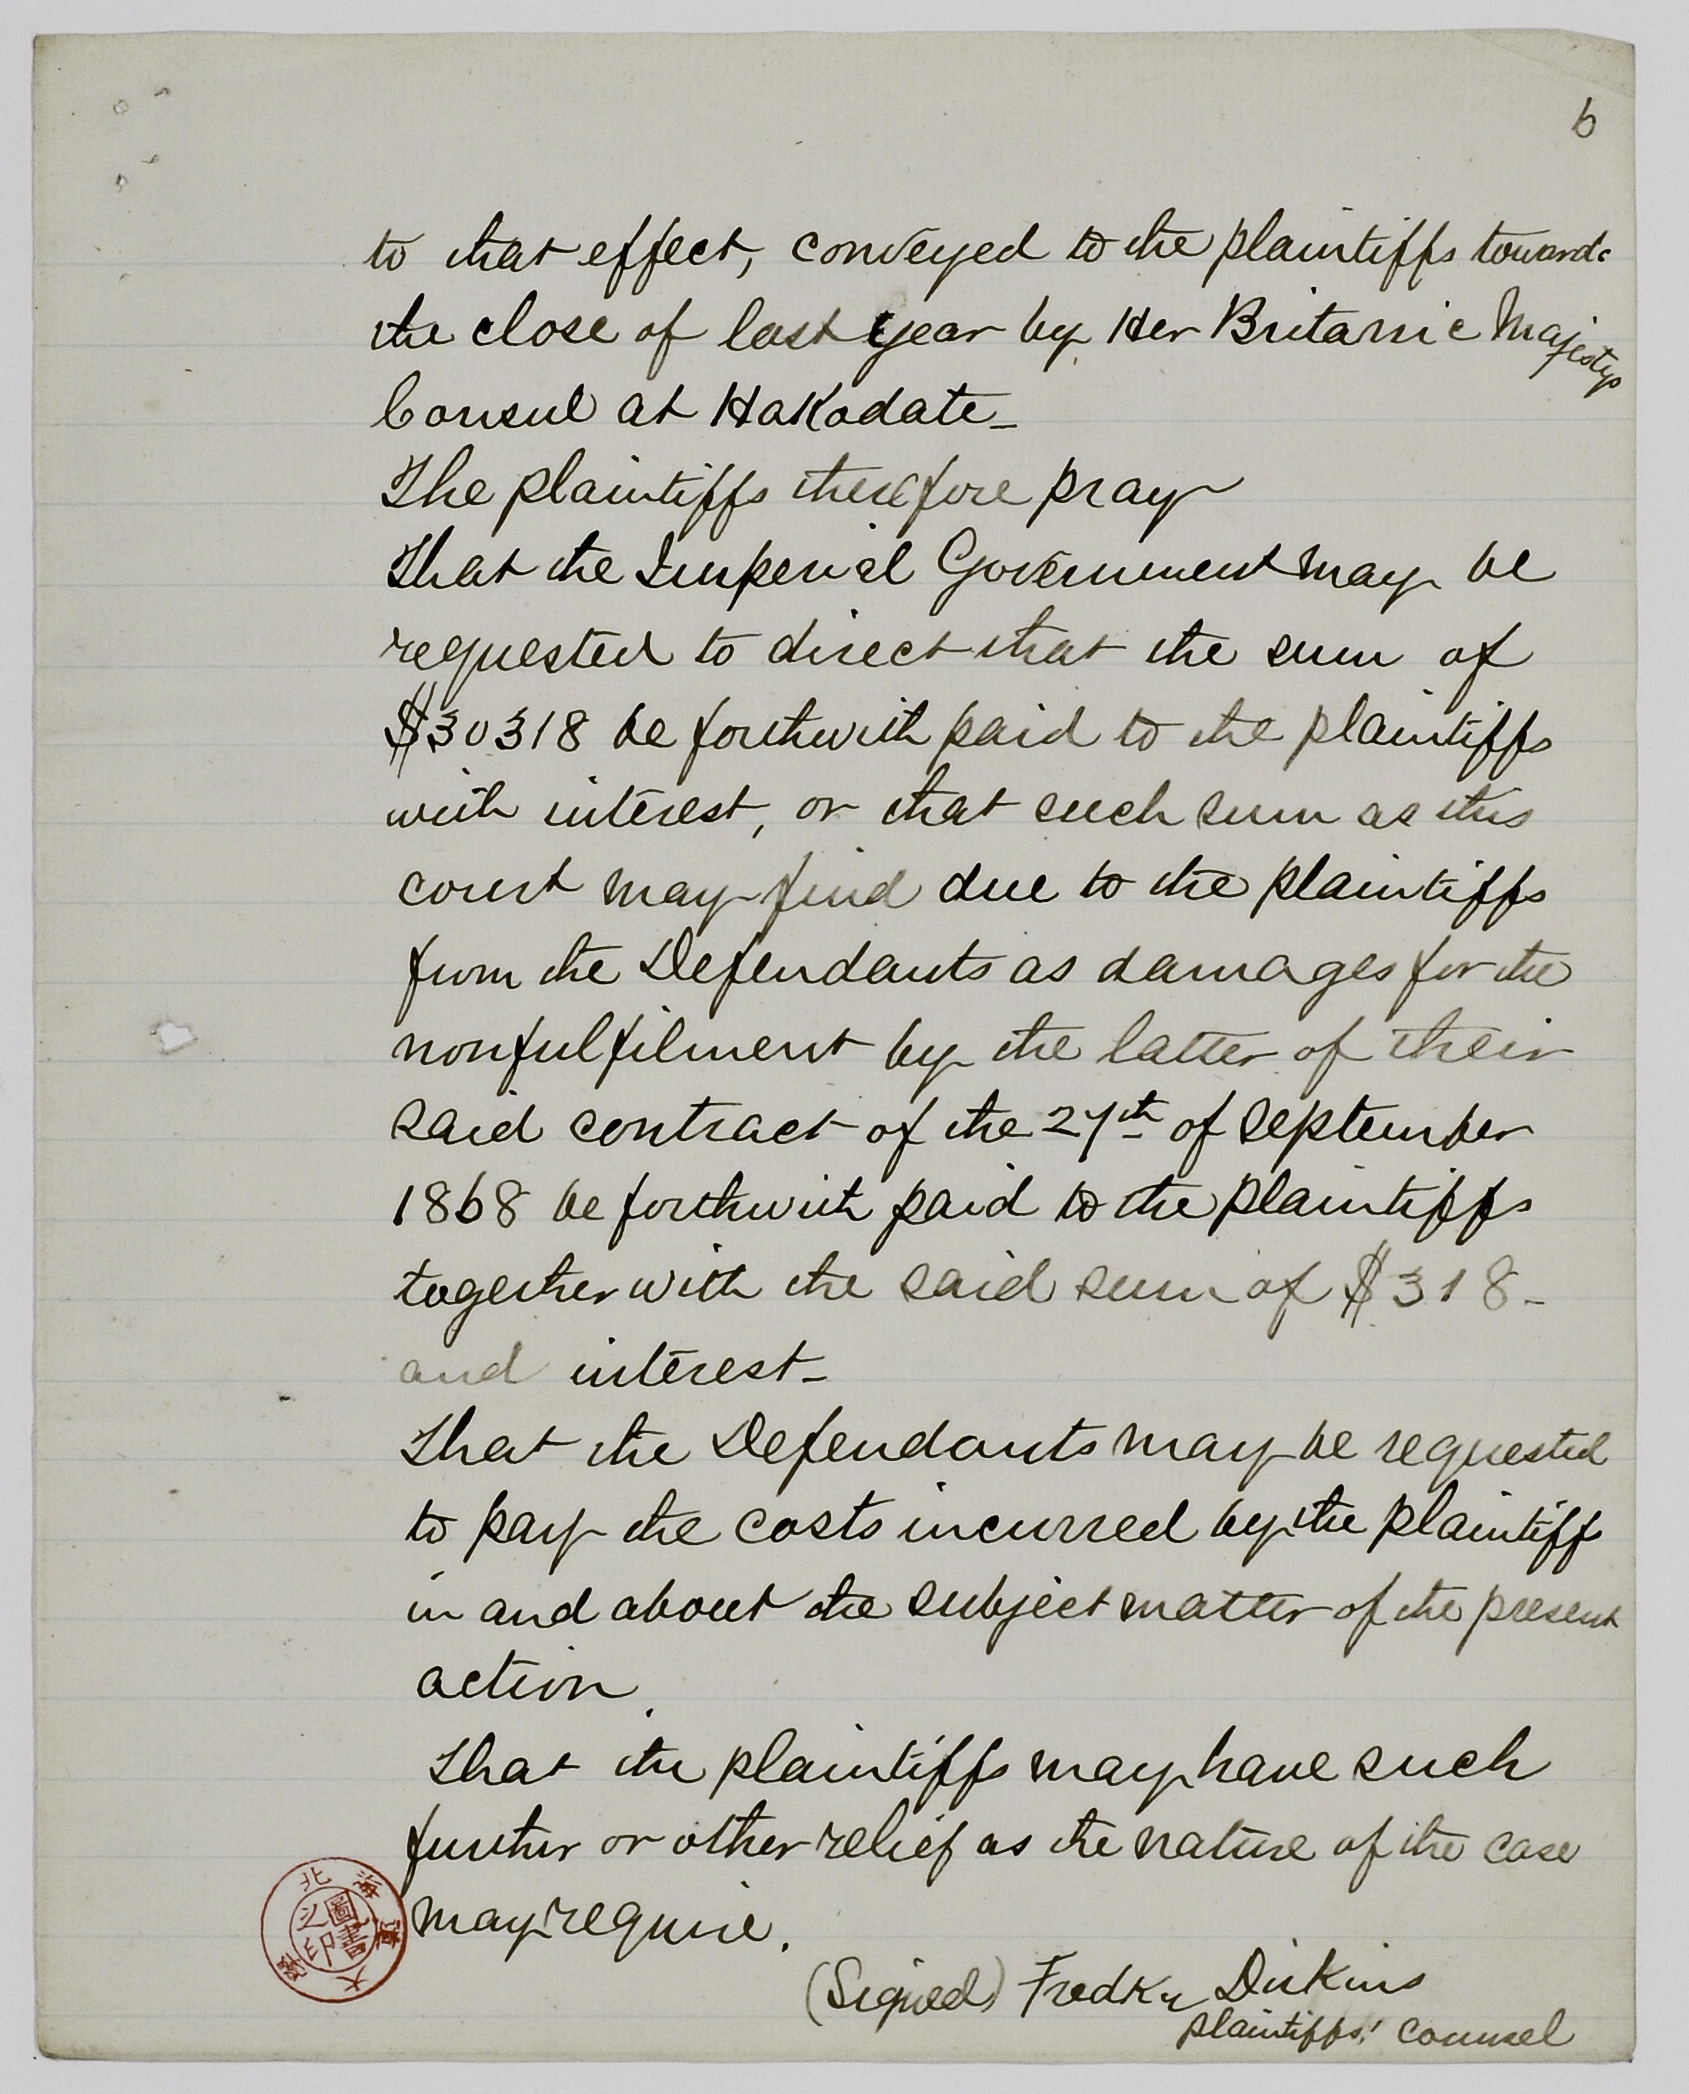 6
to that effect, conveyed to the plaintiffs towards
the close of last year by Her Britannic Majestys
Consul at Hakodate_
The plaintiffs therefore pray
That the Imperial Government may be
requested to direct that the sum of
$30318 be forthwith paid to the plaintiffs
with interest, or that such sum as this
court may find due to the plaintiffs
from the Defendants as damages for the
nonfulfilment by the latter of their
said contract of the 27th of September
1868 be forthwith paid to the plaintiffs
together with the said sum of $318_
and interest_
That the Defendants may be requested
to pay the costs incurred by the plaintiff
in and about the subject matter of the present
action.
That the plaintiffs may have such
further or other relief as the nature of the case
may require.
(Signed) Dickins
plaintiffs' counsel
北海道大學
圖書之印